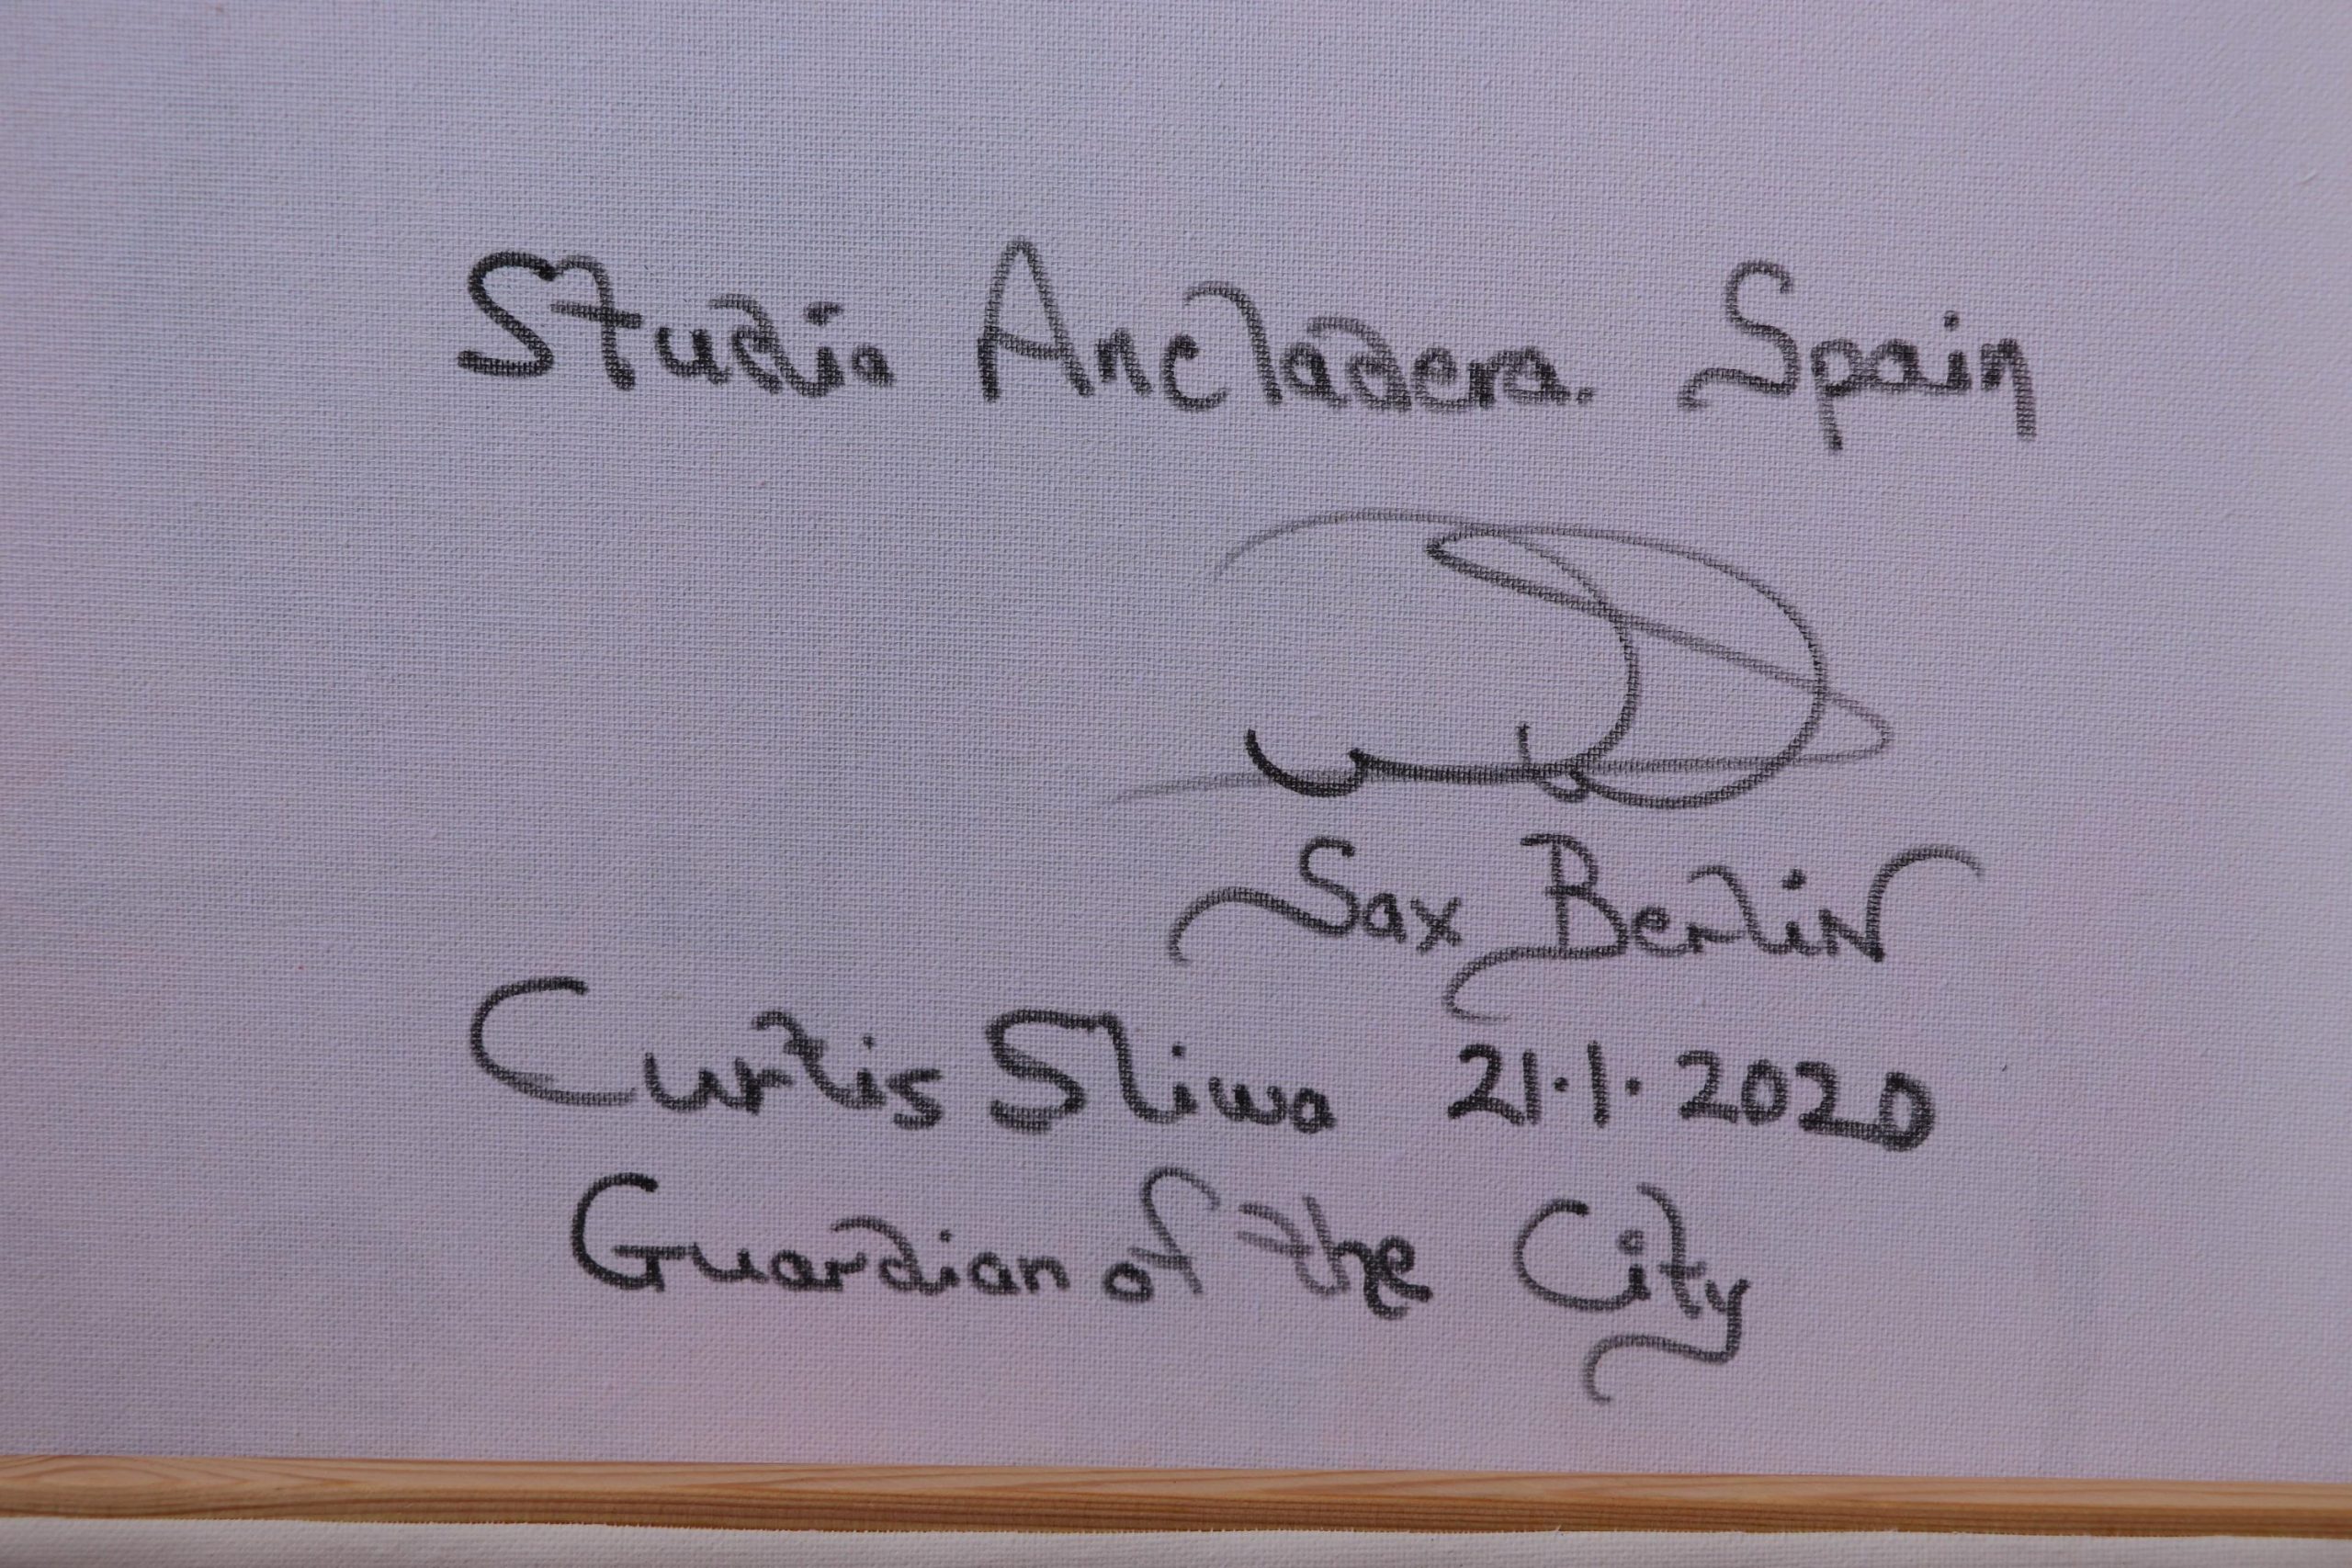 Studio Ancladera. Spain
Sax Berlin
Curtis Sliwa 21.1.2020
Guardian of the City